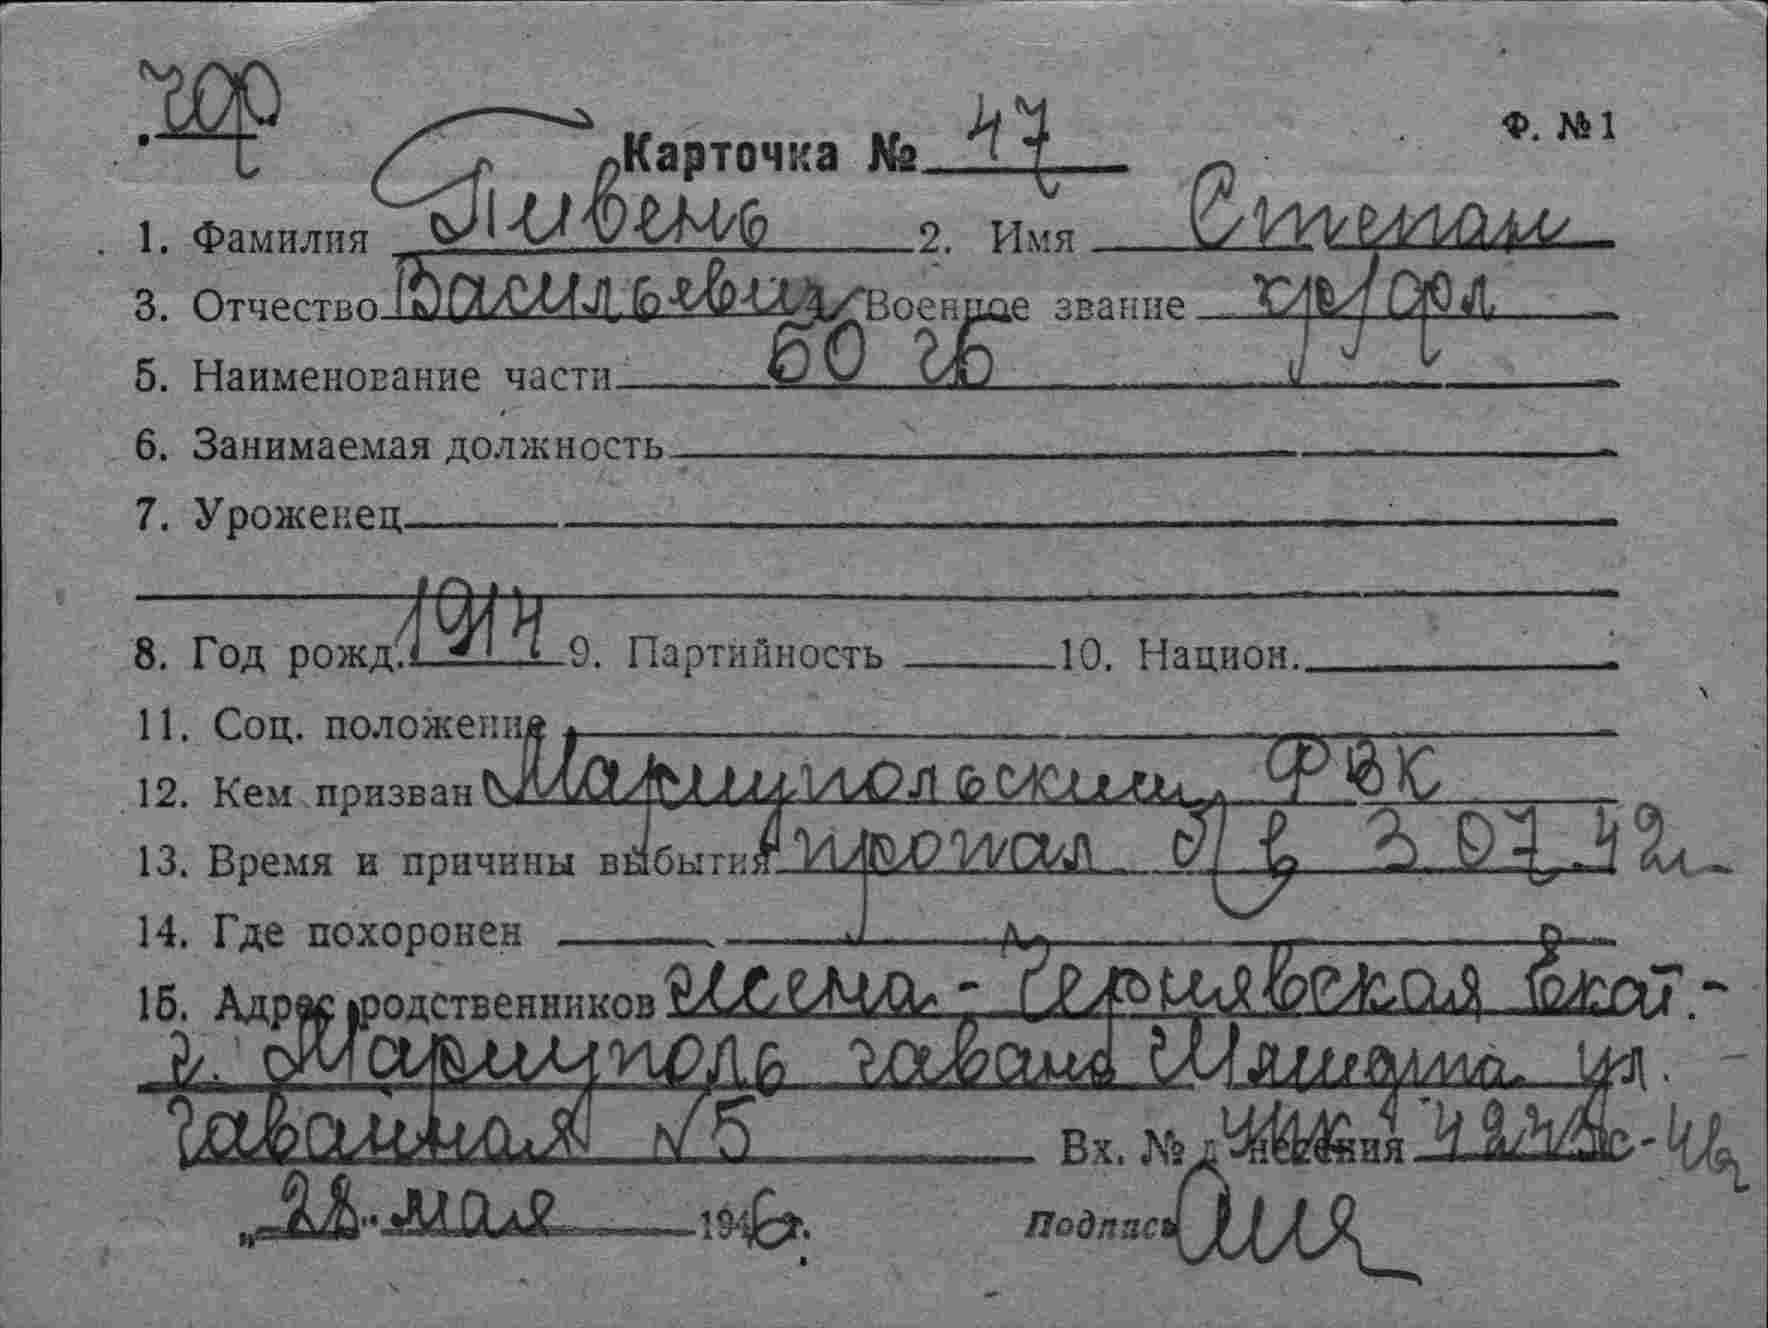 Ф. №1
Карточка № 47
1. Фамилия Пивень 2. Имя Степан
3. Отчество Васильевич Военное звание кр/фл
5. Наименование части
6. Занимаемая должность
7. Уроженец
8. Год рожд. 1914 9. Партийность 10. Национ.
11. Соц. положение
12. Кем призван Мариупольским РВК
13. Время и причины выбытия пропал б/в 3.07.42г.
14. Где похоронен
15. Адрес родственников жена - Чернявская Екат. -
г. Мариуполь гавань Шмидта ул.
Гаванная №5 Вх. № донесения
"28" мая 1946г. Подпись